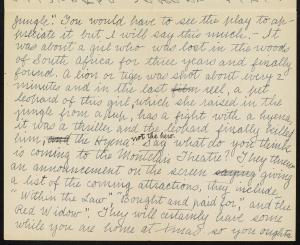 jungle." You would have to see the play to ap-
preciate it but I will say this much:- It
was about a girl who was lost in the woods
of South Africa for three years and finally
found. A lion or tiger was shot about every 2
minutes and in the last reel, a pet
leopard of this girl, which she raised in the
jungle from a pup, has a fight with a hyena,
it was a thriller and the leopard finally killed
him, and the Hyena not the hero. Say what do you think
is coming to the Montclair Theatre? They threw
an announcement on the screen saying giving
a list of the coming attractions, they include
"Within the Law", "Bought and paid for", and the
Red Widow". They will certainly have some
while you are home at Xmas so you oughta